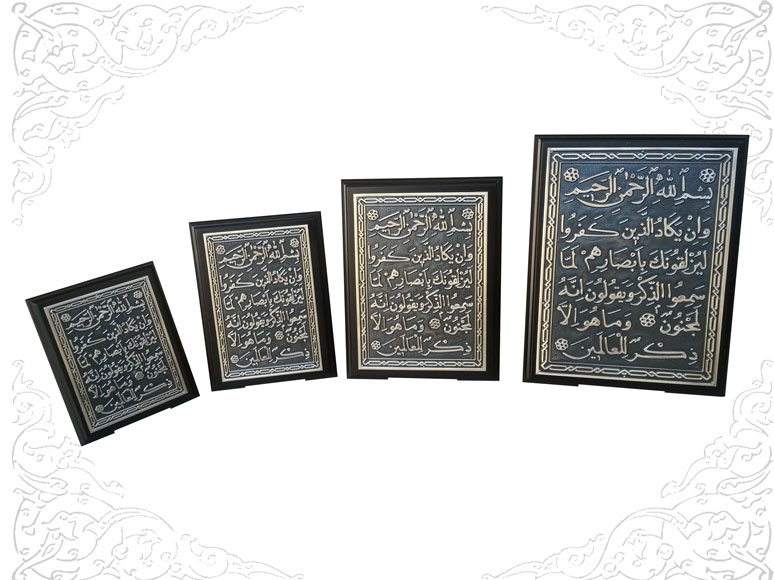 بسم الله الرحمن الرحيم
وان يكاد الذين كفروا
ليزلقونك بابصارهم لما
سمعوا الذكر ويقولون انه
لمجنون وما هو الا
ذكر للعالمين
بسم الله الرحمن الرحيم
وان يكاد الذين كفروا
ليزلقونك بابصارهم لما
سمعوا الذكر ويقولون انه
لمجنون وما هو الا
ذكر للعالمين
بسم الله الرحمن الرحيم
وان يكاد الذين كفروا
ليزلقونك بابصارهم لما
سمعوا الذكر ويقولون انه
لمجنون وما هو الا
ذكر للعالمين
بسم الله الرحمن الرحيم
وان يكاد الذين كفروا
ليزلقونك بابصارهم لما
سمعوا الذكر ويقولون انه
لمجنون وما هو الا
ذكر للعالمين